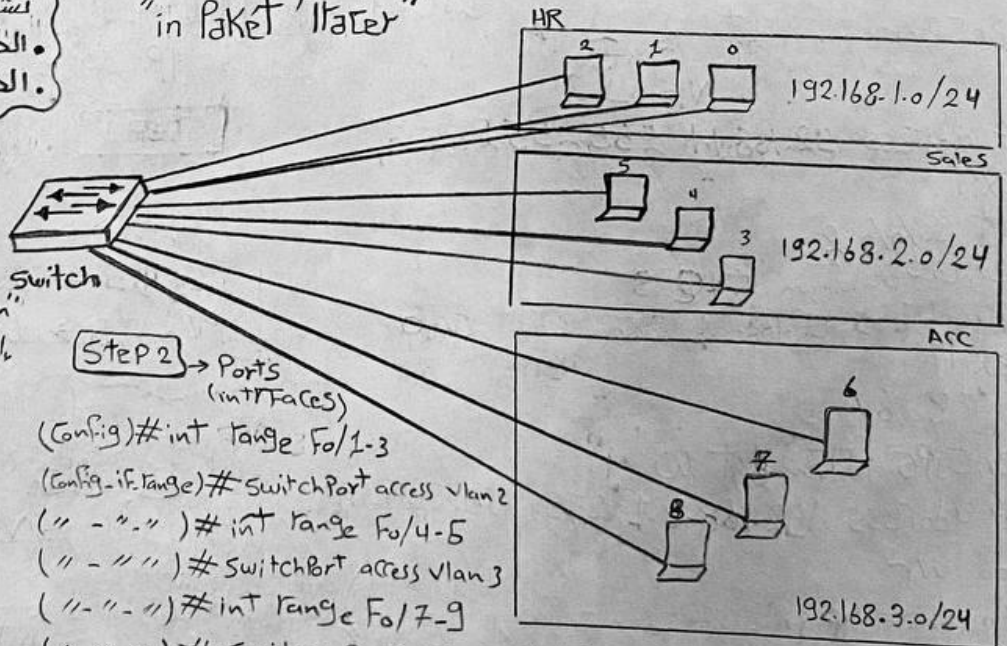 "in Paket Tracer"
HR
2 1 0
192.168.1.0/24
Sales
5
4
3
192.168.2.0/24
Switch
ACC
6
7
8
192.168.3.0/24
Step 2 → Ports
(intrFaces)
(Config)# int range Fo/1-3
(Config-if.range)# SwitchPort access vlan 2
(" - "." )# int range Fo/4-6
(" - " ")# SwitchPort access vlan 3
("-"-")# int range Fo/7-9